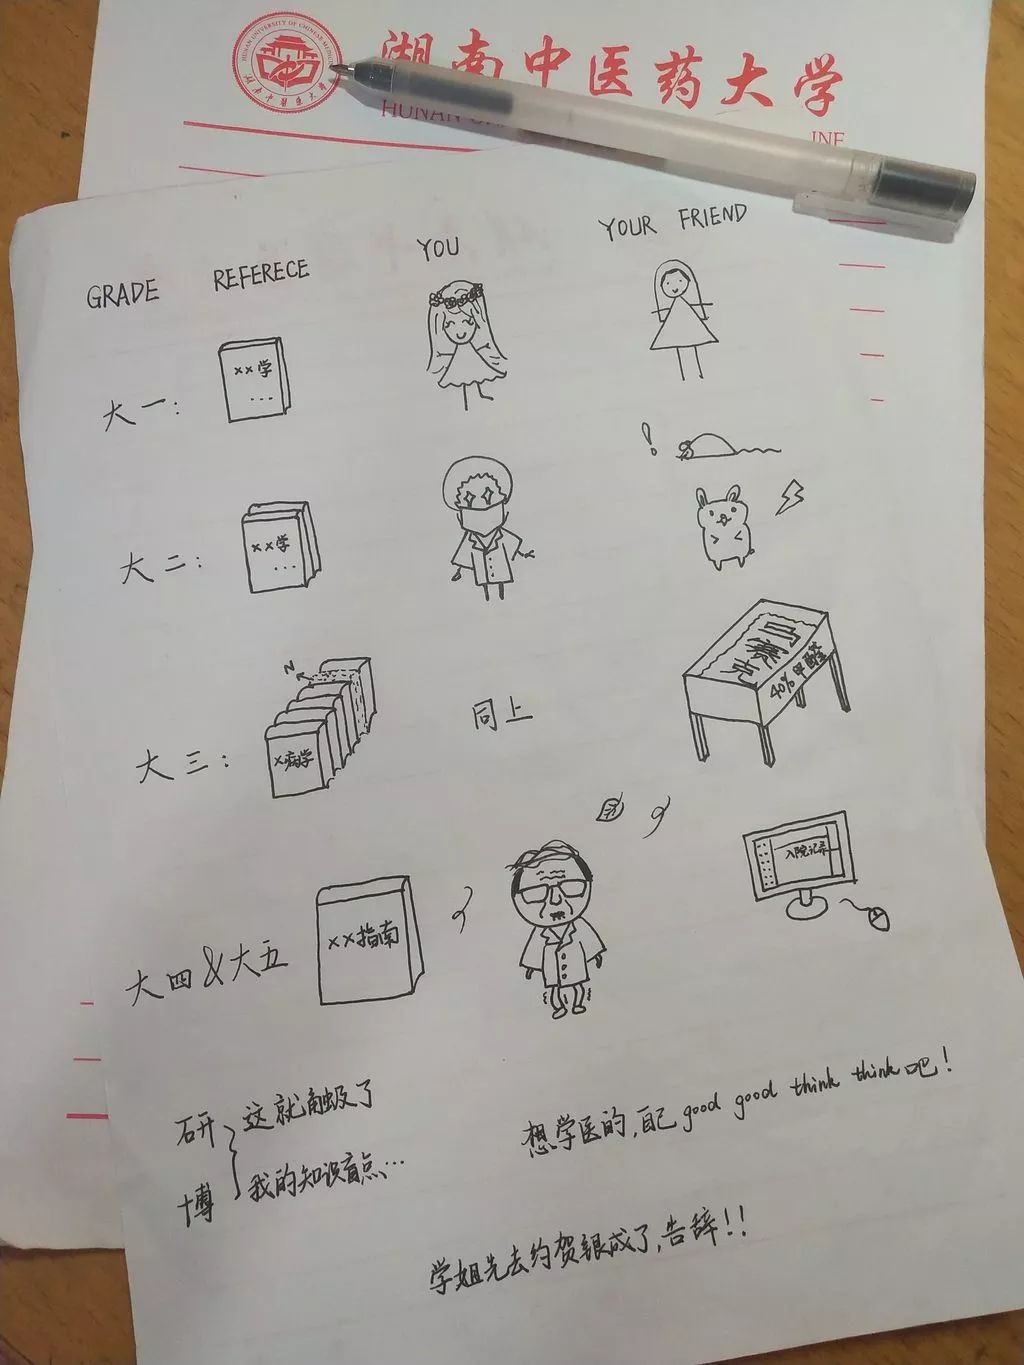 HUNAN UNIVERSITY OF CHINESE MEDICINE
湖南中医药大学
湖南中医药大学
HUNAN
INE
GRADE REFERECE YOU YOUR FRIEND
大一： ××学 ...
大二： ××学 ...
!
大三： ×病学 N 同上 马赛克 40%甲醛
大四&大五 ××指南 团 入院记录
研 这就触及了
博 我的知识盲点...
想学医的,自己good good think think吧！
学姐先去约贺银成了,告辞！！